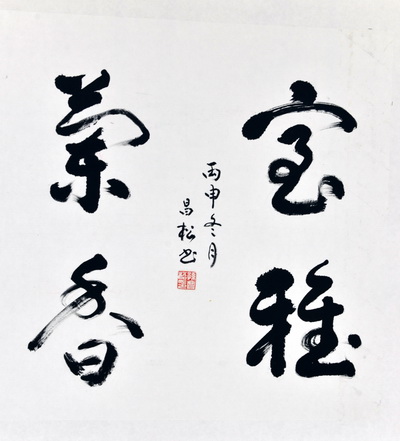 室雅
蘭香
丙申冬月
昌松书